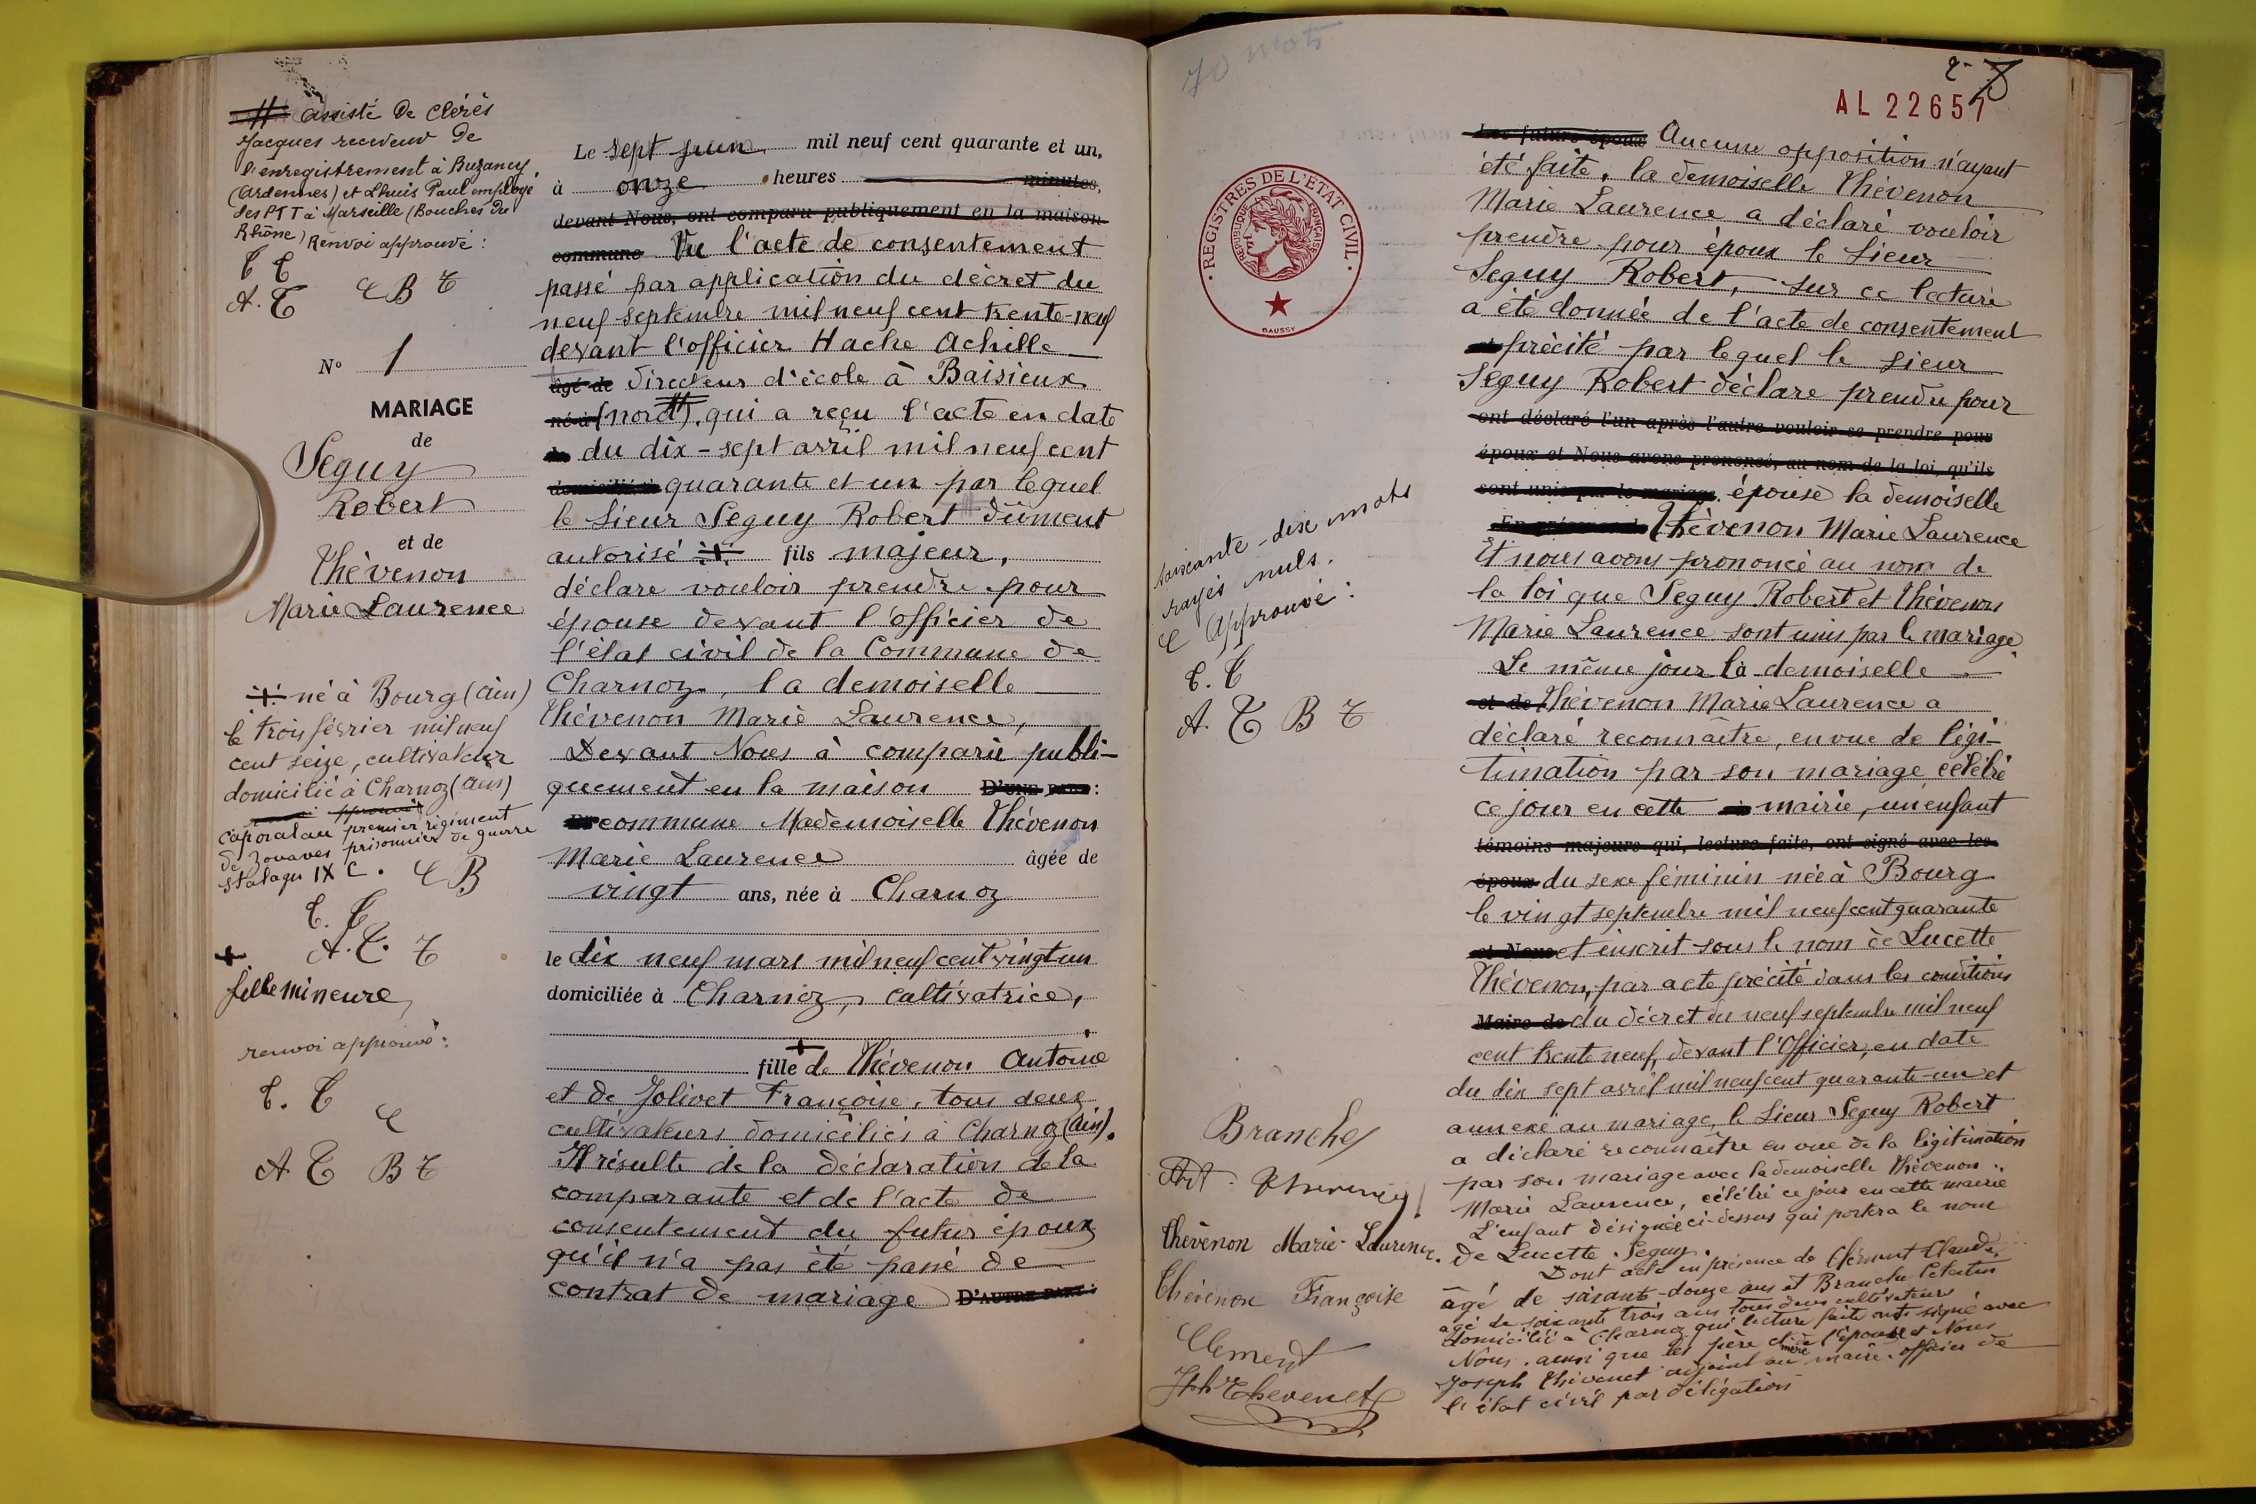 assisté de Clérès
Jacques receveur de
l'enregistrement à Buzancy
(Ardennes) et Lhuis Paul employé
des PTT à Marseille (Bouches du
Rhône) Renvoi approuvé :
T C
A. T C B T
N° 1
MARIAGE
de
Seguy
Robert
et de
Thévenon
Marie Laurence
né à Bourg (Ain)
le trois février mil neuf
cent seize, cultivateur
domicilié à Charnoz (Ain)
caporal au premier régiment
de zouaves prisonnier de guerre
stalag IX C. C B
T. C
A. T. T
fille mineure
renvoi approuvé :
T. C C
A T B T
Le sept juin mil neuf cent quarante et un,
à onze heures minutes,
devant Nous, ont comparu publiquement en la maison
commune Vu l'acte de consentement
passé par application du décret du
neuf septembre mil neuf cent trente-neuf
devant l'officier Hache Achille
âgé de directeur d'école à Baisieux
né à (nord). qui a reçu l'acte en date
du dix-sept avril mil neuf cent
domicilié à quarante et un par lequel
le Sieur Seguy Robert dûment
autorisé fils majeur,
déclare vouloir prendre pour
épouse devant l'officier de
l'état civil de la Commune de
Charnoz, la demoiselle
Thévenon Marie Laurence,
Devant Nous à comparu publi-
quement en la maison D'UNE PART :
commune Mademoiselle Thévenon
Marie Laurence âgée de
vingt ans, née à Charnoz
le dix neuf mars mil neuf cent vingt un
domiciliée à Charnoz, cultivatrice,
fille de Thévenon Antoine
et de Jolivet Françoise, tous deux
cultivateurs domiciliés à Charnoz (Ain).
Il résulte de la déclaration de la
comparante et de l'acte de
consentement du futur époux
qu'il n'a pas été passé de
contrat de mariage D'AUTRE PART :
70 mots
AL 22657
REGISTRES DE L'ÉTAT CIVIL
RÉPUBLIQUE FRANÇAISE
DAUSSY
soixante-dix mots
rayés nuls.
C Approuvé :
T. C
A. T B T
Les futurs époux Aucune opposition n'ayant
été faite, la demoiselle Thévenon
Marie Laurence a déclaré vouloir
prendre pour époux le Sieur
Seguy Robert, sur ce lecture
a été donnée de l'acte de consentement
précité par lequel le sieur
Seguy Robert déclare prendre pour
ont déclaré l'un après l'autre vouloir se prendre pour
époux et Nous avons prononcé, au nom de la loi, qu'ils
sont unis par le mariage. épouse la demoiselle
Thévenon Marie Laurence
Et nous avons prononcé au nom de
la loi que Seguy Robert et Thévenon
Marie Laurence sont unis par le mariage.
Le même jour la demoiselle
et de Thévenon Marie Laurence a
déclaré reconnaître, en vue de légi-
timation par son mariage célébré
ce jour en cette mairie, un enfant
témoins majeurs qui, lecture faite, ont signé avec les
époux du sexe féminin née à Bourg
le vingt septembre mil neuf cent quarante
et Nous et inscrit sous le nom de Lucette
Thévenon, par acte précité dans les conditions
Maire de du décret du neuf septembre mil neuf
cent trente neuf, devant l'Officier, en date
du dix sept avril mil neuf cent quarante-un et
annexé au mariage, le Sieur Seguy Robert
a déclaré reconnaître en vue de la légitimation
par son mariage avec la demoiselle Thévenon
Marie Laurence, célébré ce jour en cette mairie
L'enfant désignée ci-dessus qui portera le nom
de Lucette Seguy.
Dont acte en présence de Clément Claude,
âgé de soixante-douze ans et Branche
âgé de soixante trois ans tous deux cultivateurs
domicilié à Charnoz qui lecture faite ont signé avec
Nous. ainsi que les père et mère de l'épouse et Nous
Joseph Thévenet adjoint au maire. officier de
l'état civil par délégation
Branche
Ant. Thevenon
Thévenon Marie-Laurence.
Thévenon Françoise
Clement
Jph Thevenet